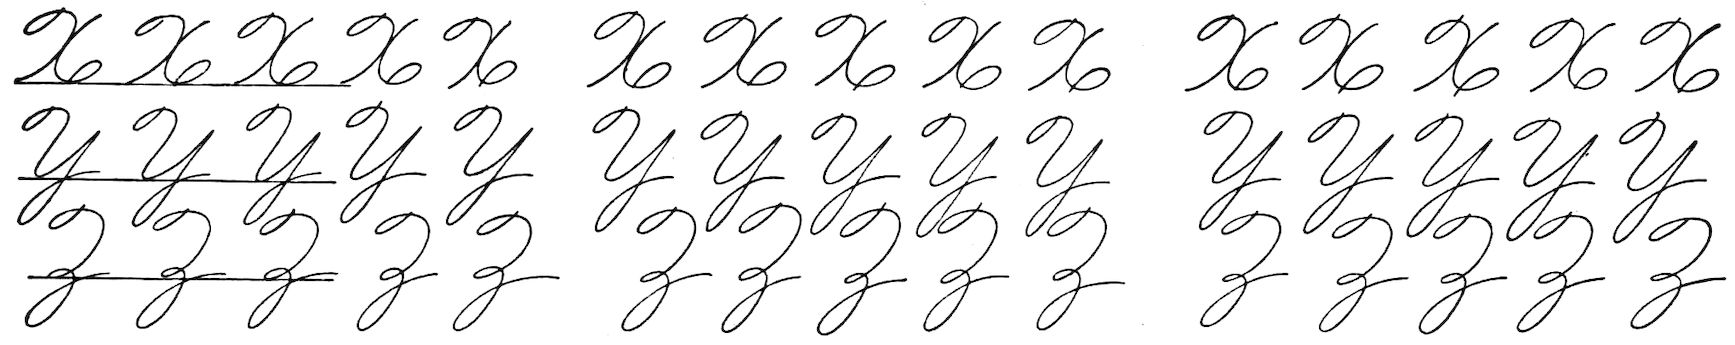 X X X X X X X X X X X X X X X
Y Y Y Y Y Y Y Y Y Y Y Y Y Y Y
Z Z Z Z Z Z Z Z Z Z Z Z Z Z Z